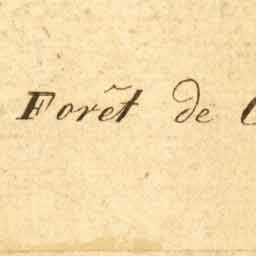 Forêt de